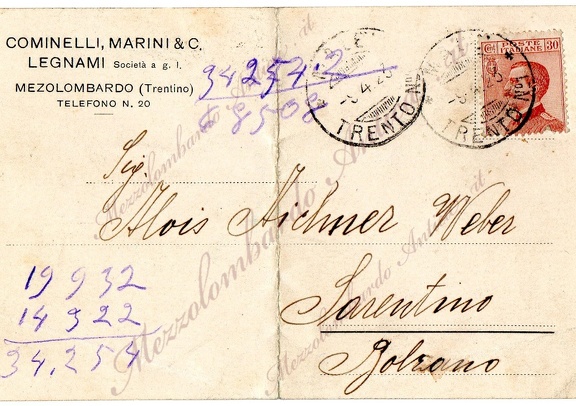 COMINELLI, MARINI & C.
LEGNAMI Società a g. l.
MEZOLOMBARDO (Trentino)
TELEFONO N. 20
34254
8508
TRENTO
TRENTO
POSTE ITALIANE 30
Sig.
Alois Aichner Weber
Sarentino
Bolzano
19932
14322
34.254
Mezzolombardo
Mezzolombardo